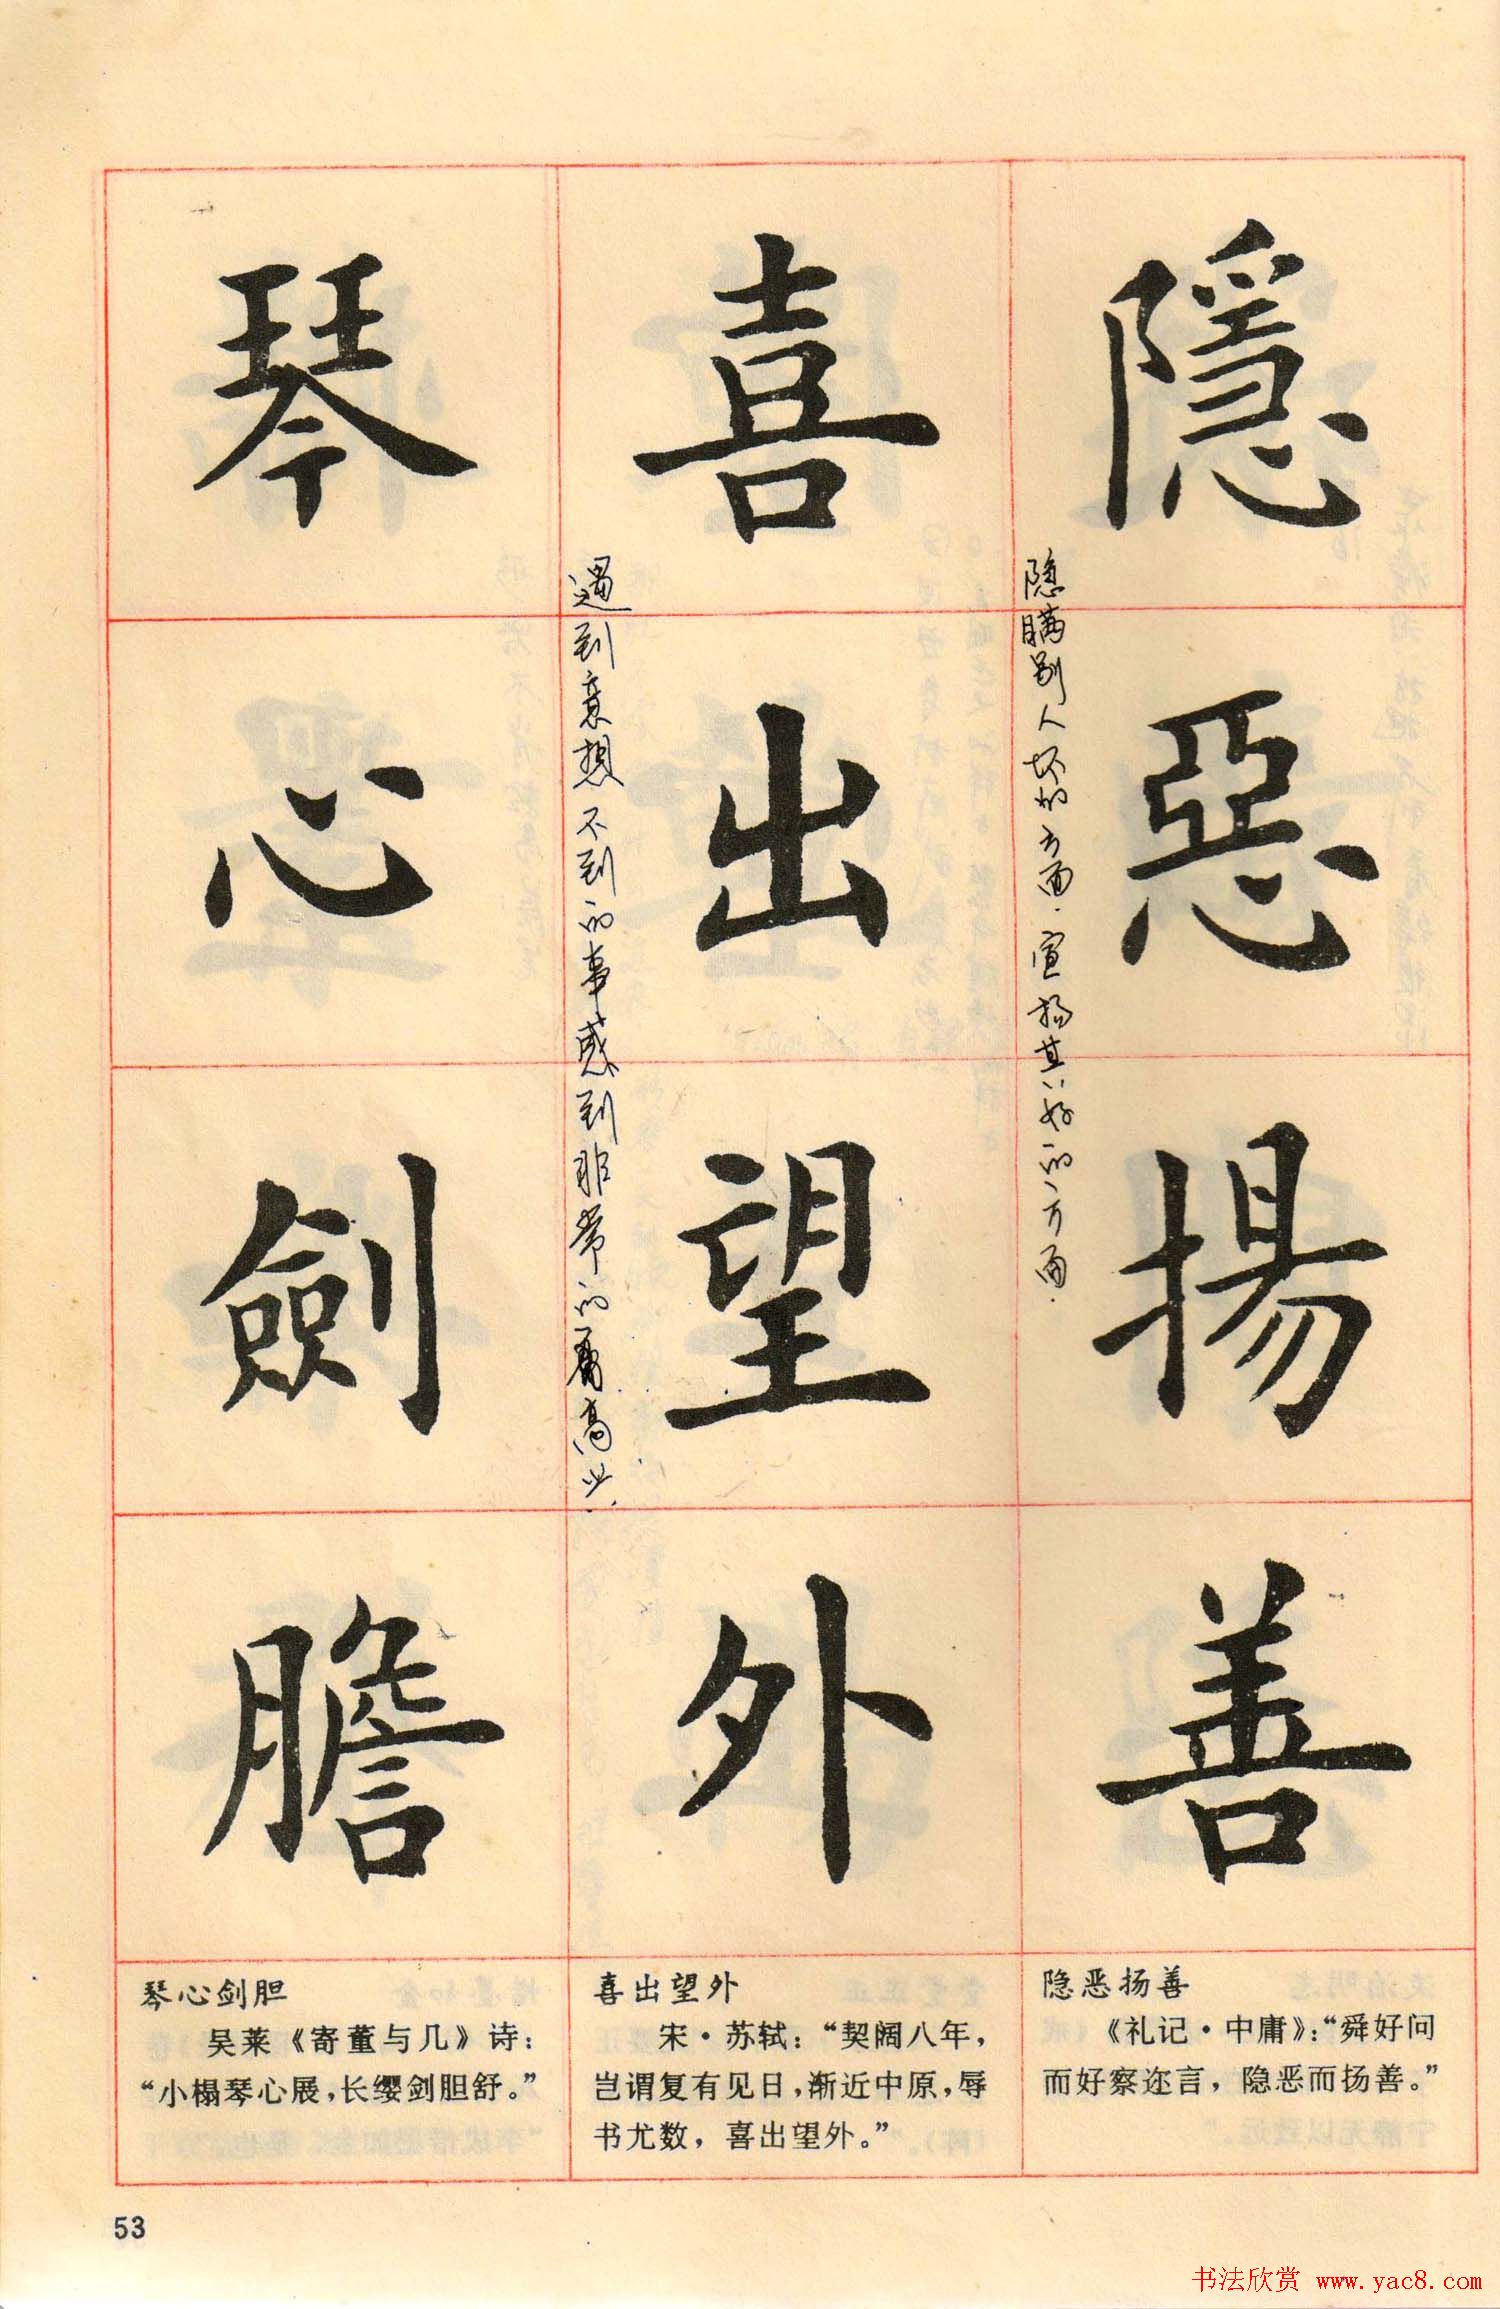 隱惡揚善
隐瞒别人坏的方面.宣扬其好的方面.
喜出望外
遇到意想不到的事感到非常的高兴.
琴心劍膽
隐恶扬善
《礼记·中庸》:“舜好问
而好察迩言，隐恶而扬善。”
喜出望外
宋·苏轼：“契阔八年，
岂谓复有见日，渐近中原，辱
书尤数，喜出望外。”
琴心剑胆
吴莱《寄董与几》诗：
“小榻琴心展，长缨剑胆舒。”
53
书法欣赏 www.yac8.com